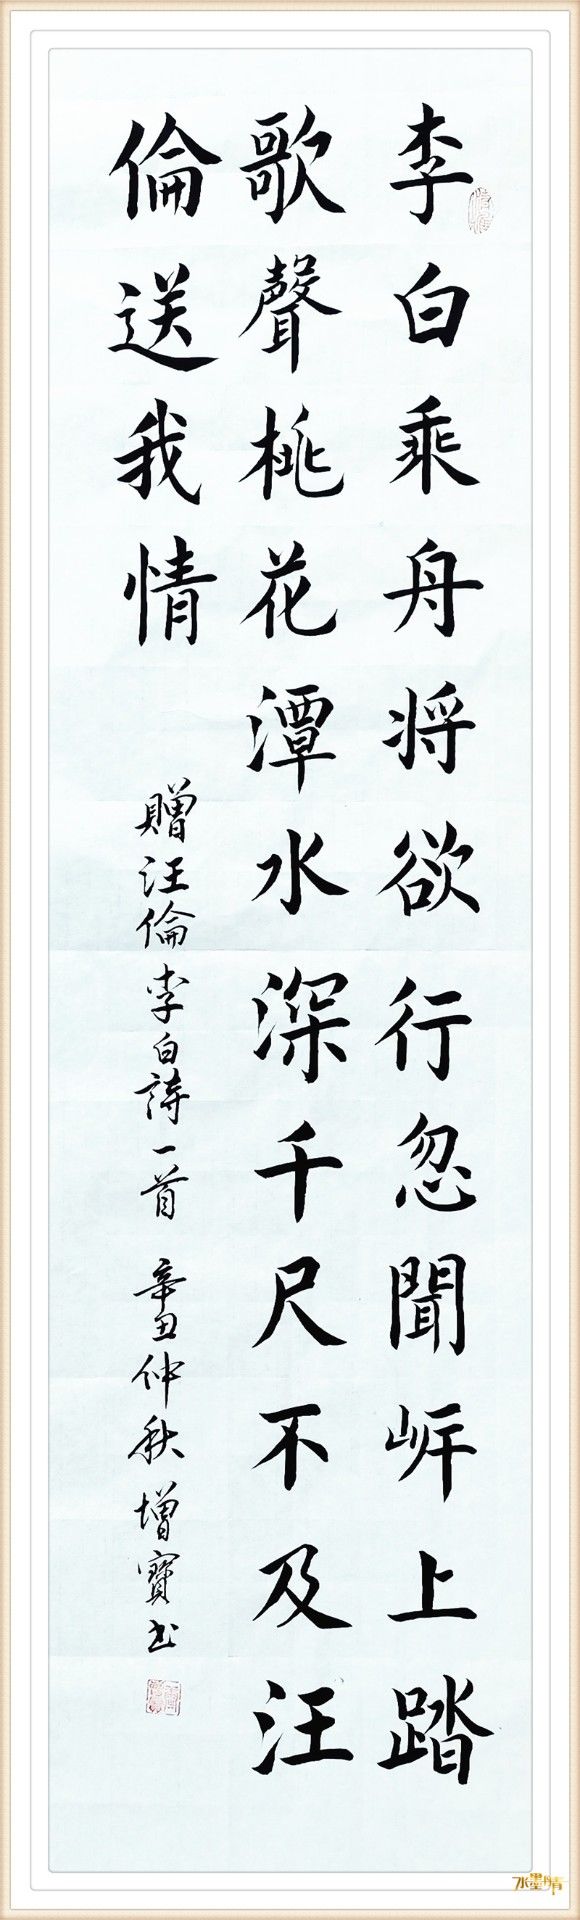 李白乘舟将欲行忽聞岸上踏
歌聲桃花潭水深千尺不及汪
倫送我情
贈汪倫李白詩一首 辛丑仲秋增寶书
水墨丹青